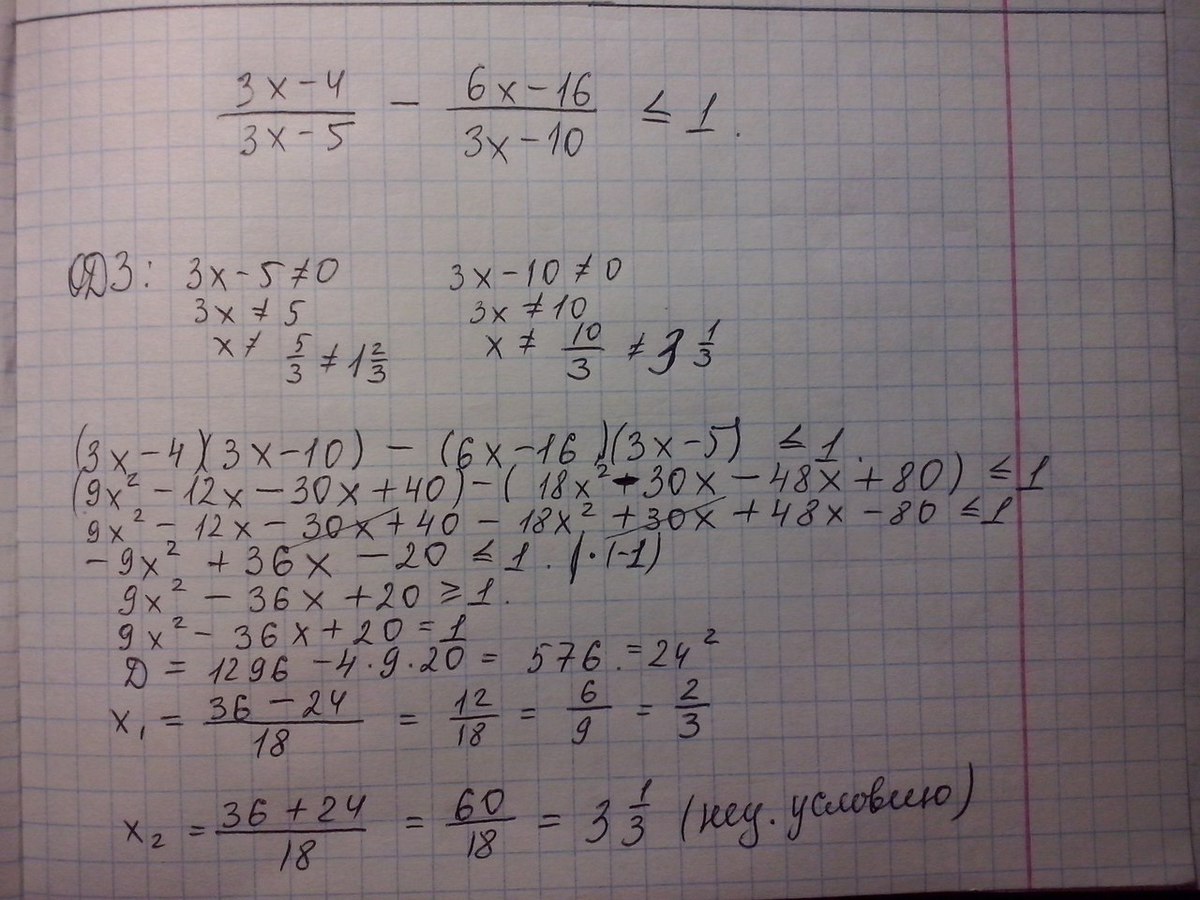 (3x-4)/(3x-5) - (6x-16)/(3x-10) ≤ 1.
ОДЗ: 3x-5≠0 3x-10≠0
3x ≠ 5 3x ≠ 10
x ≠ 5/3 ≠ 1 2/3 x ≠ 10/3 ≠ 3 1/3
(3x-4)(3x-10) - (6x-16)(3x-5) ≤ 1.
(9x² - 12x - 30x + 40) - (18x² - 30x - 48x + 80) ≤ 1
9x² - 12x - 30x + 40 - 18x² + 30x + 48x - 80 ≤ 1
-9x² + 36x - 20 ≤ 1. |·(-1)
9x² - 36x + 20 ≥ 1.
9x² - 36x + 20 = 1
Д = 1296 - 4·9·20 = 576. = 24²
x₁ = (36-24)/18 = 12/18 = 6/9 = 2/3
x₂ = (36+24)/18 = 60/18 = 3 1/3 (неу. условию)